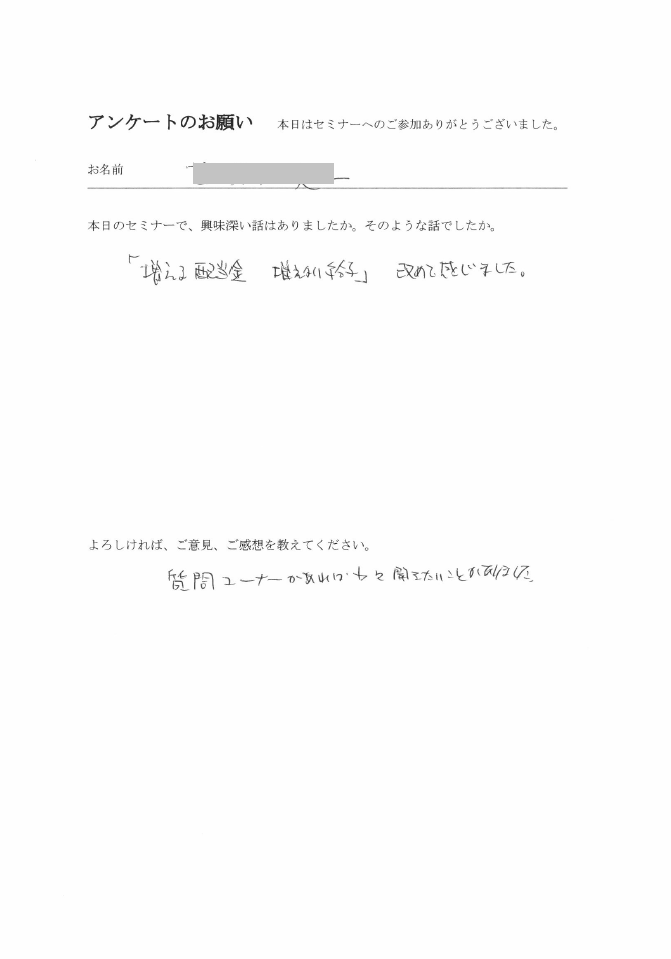 アンケートのお願い 本日はセミナーへのご参加ありがとうございました。
お名前
本日のセミナーで、興味深い話はありましたか。そのような話でしたか。
「増える配当金 増えない給料」 改めて感じました。
よろしければ、ご意見、ご感想を教えてください。
質問コーナーがあればもっと聞きたいことがありました